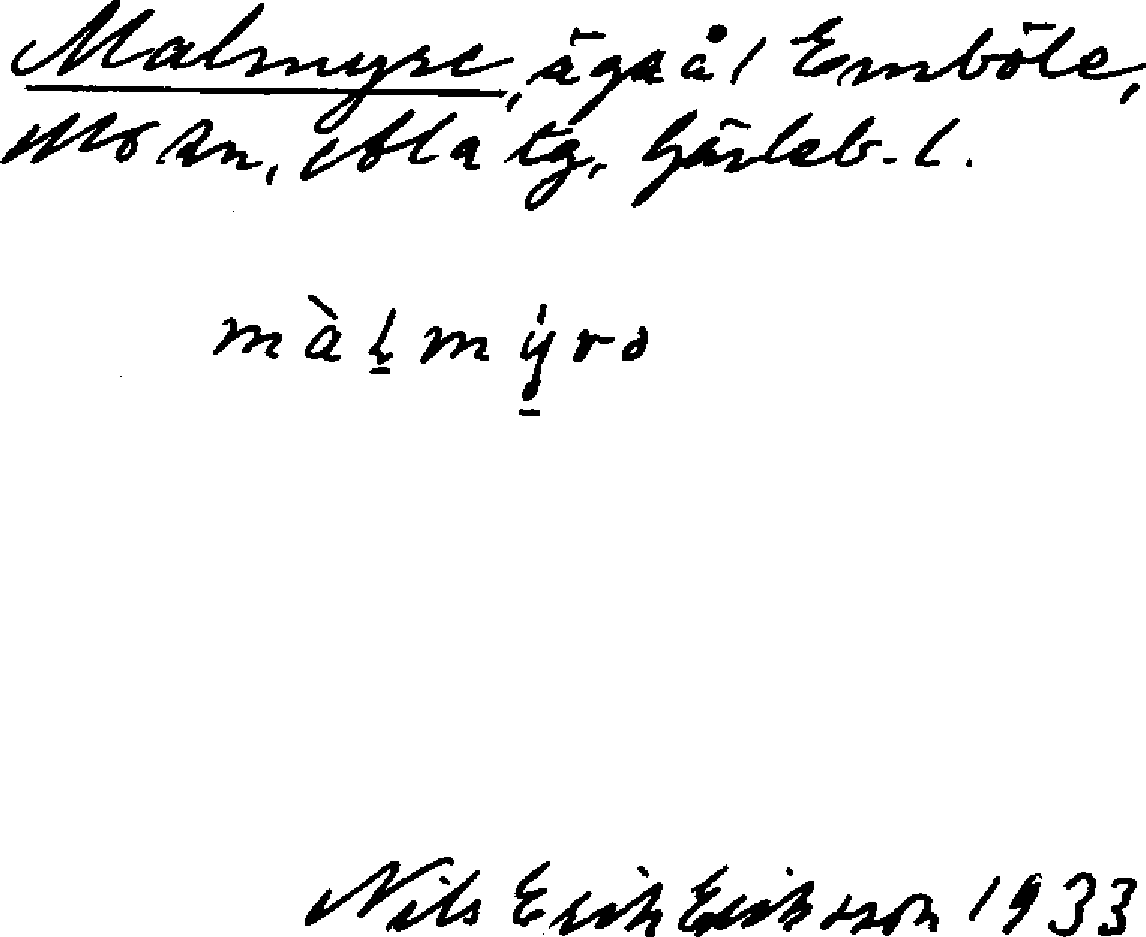 Malmyre, ägså i Emböle,
Mo sn, Ala tg, Gävleb. l.
màl̠mẏ̠rə
Nils Erik Eriksson 1933